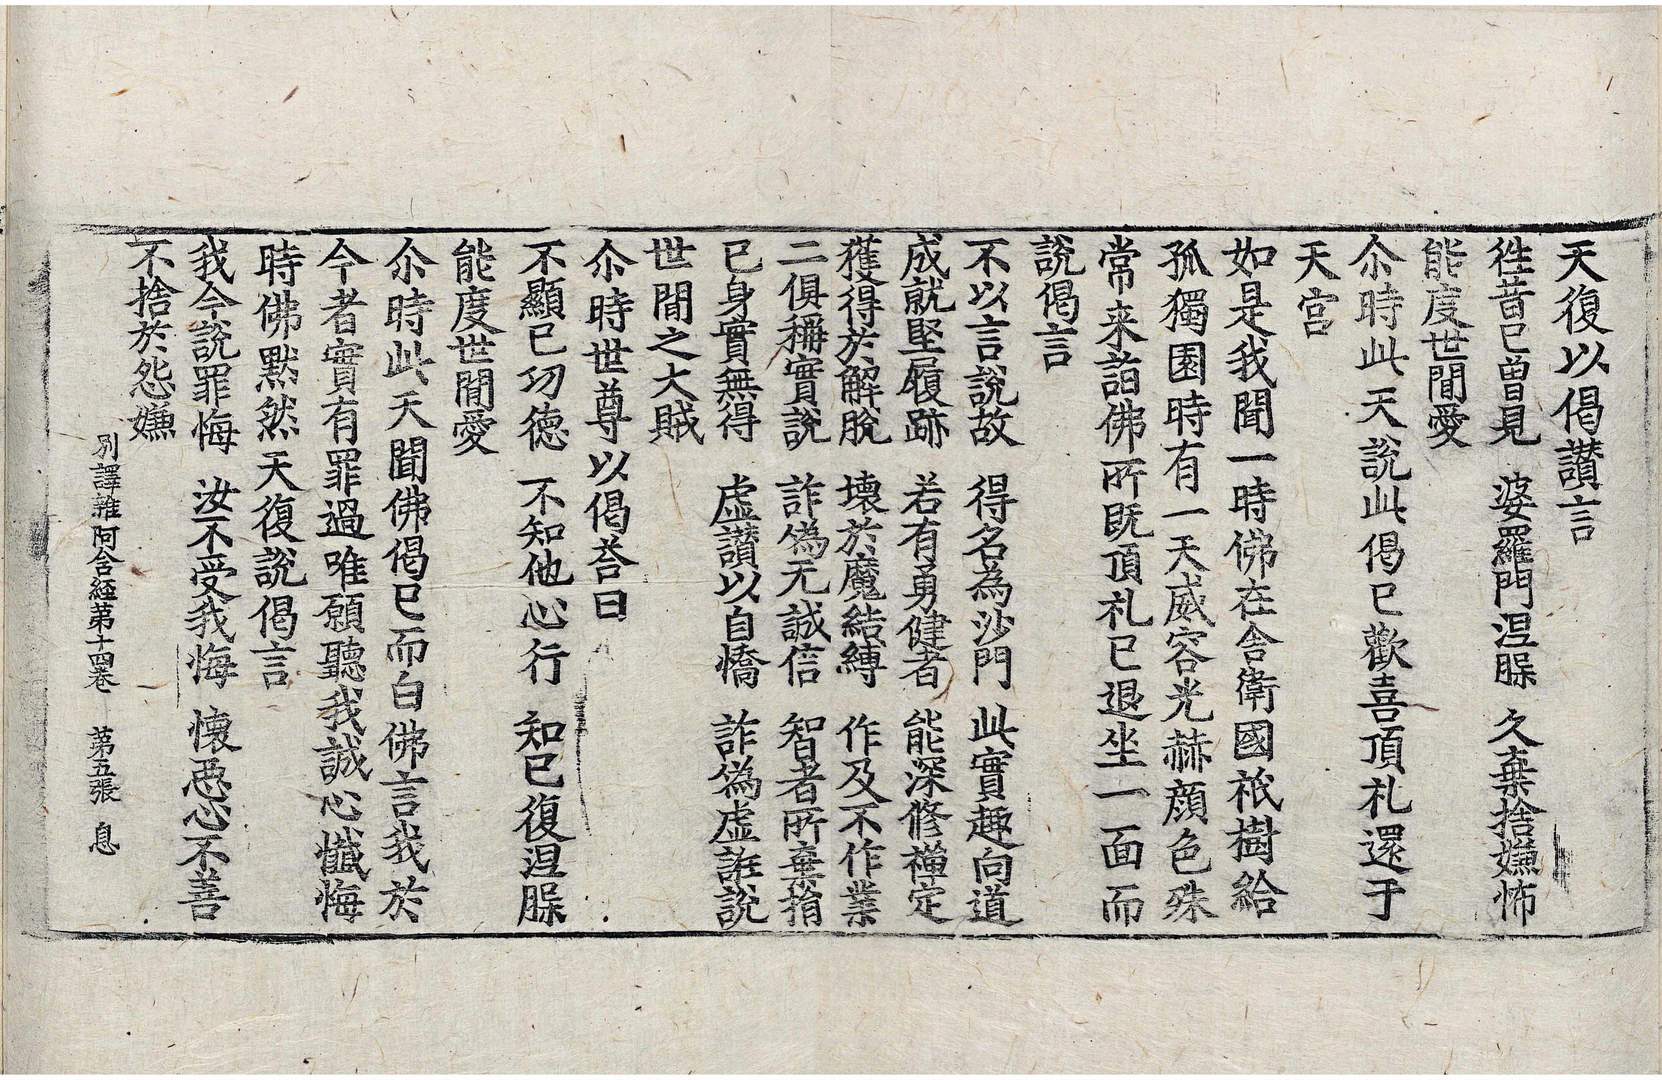 天復以偈讃言
徃昔已曾見　婆羅門涅槃　久棄捨嫌怖
能度世間愛
尒時此天說此偈已歡喜頂礼還于
天宫
如是我聞一時佛在舍衛國祇樹給
孤獨園時有一天威容光赫顔色殊
常来詣佛所既頂礼已退坐一面而
說偈言
不以言說故　得名為沙門　此實趣向道
成就堅履跡　若有勇健者　能深修禅定
獲得於解脫　壞於魔結縛　作及不作業
二俱稱實說　詐偽无誠信　智者所棄捐
已身實無得　虚讃以自憍　詐偽虚誑說
世間之大賊
尒時世尊以偈荅曰
不顯已功德　不知他心行　知已復涅槃
能度世間愛
尒時此天聞佛偈已而白佛言我於
今者實有罪過唯願聽我誠心懺悔
時佛默然天復說偈言
我今說罪悔　汝不受我悔　懐惡心不善
不捨於怨嫌
別譯雜阿含経第十四卷　第五張　息